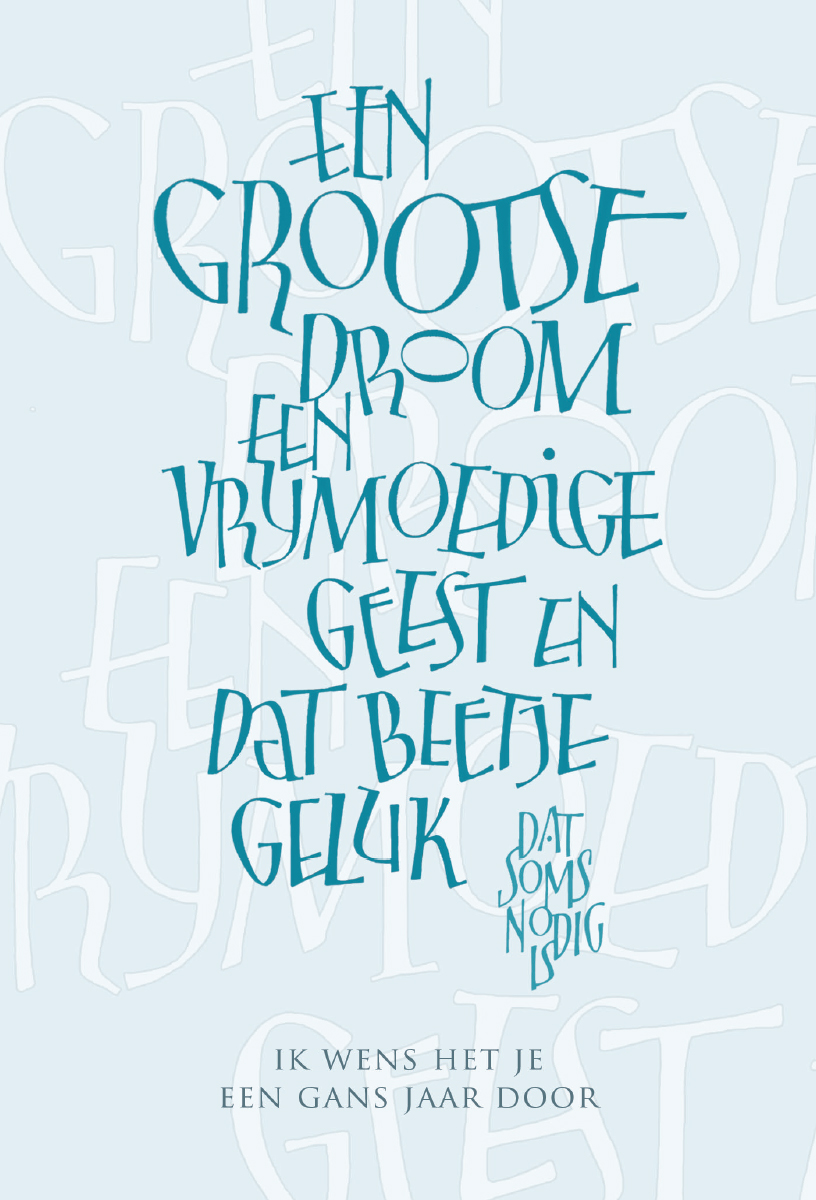 EEN
GROOTSE
DROOM
EEN
VRIJMOEDIGE
GEEST EN
DAT BEETJE
GELUK
DAT
SOMS
NODIG
IS
IK WENS HET JE
EEN GANS JAAR DOOR